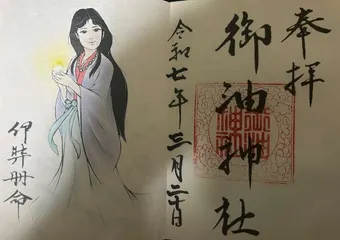 奉拝
御油神社
令和七年三月二十日
伊弉冊命